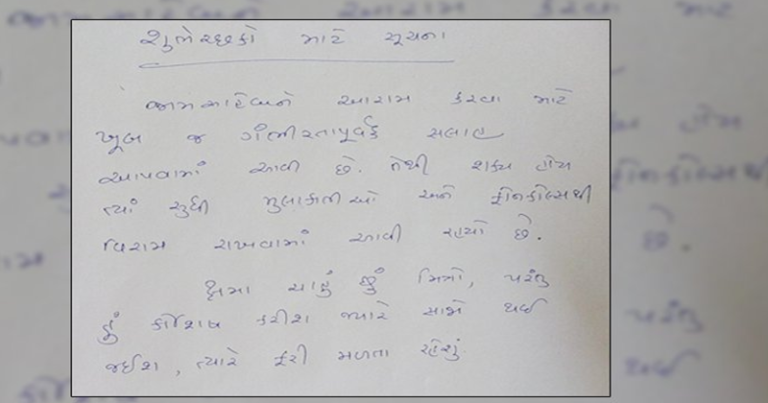 શુભેચ્છકો માટે સૂચના
જામસાહેબને આરામ કરવા માટે
ખૂબ જ ગંભીરતાપૂર્વક સલાહ
આપવામાં આવી છે. તેથી શક્ય હોય
ત્યાં સુધી મુલાકાતીઓ અને ફોનકોલ્સથી
વિરામ રાખવામાં આવી રહ્યો છે.
ક્ષમા ચાહું છું મિત્રો, પરંતુ
હું કોશિષ કરીશ જ્યારે સાજો થઈ
જઈશ, ત્યારે ફરી મળતા રહેશું